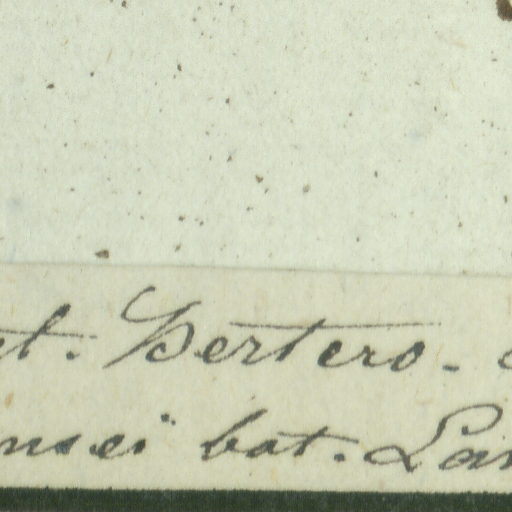 et. Bertero. 
nsei bat. Lan